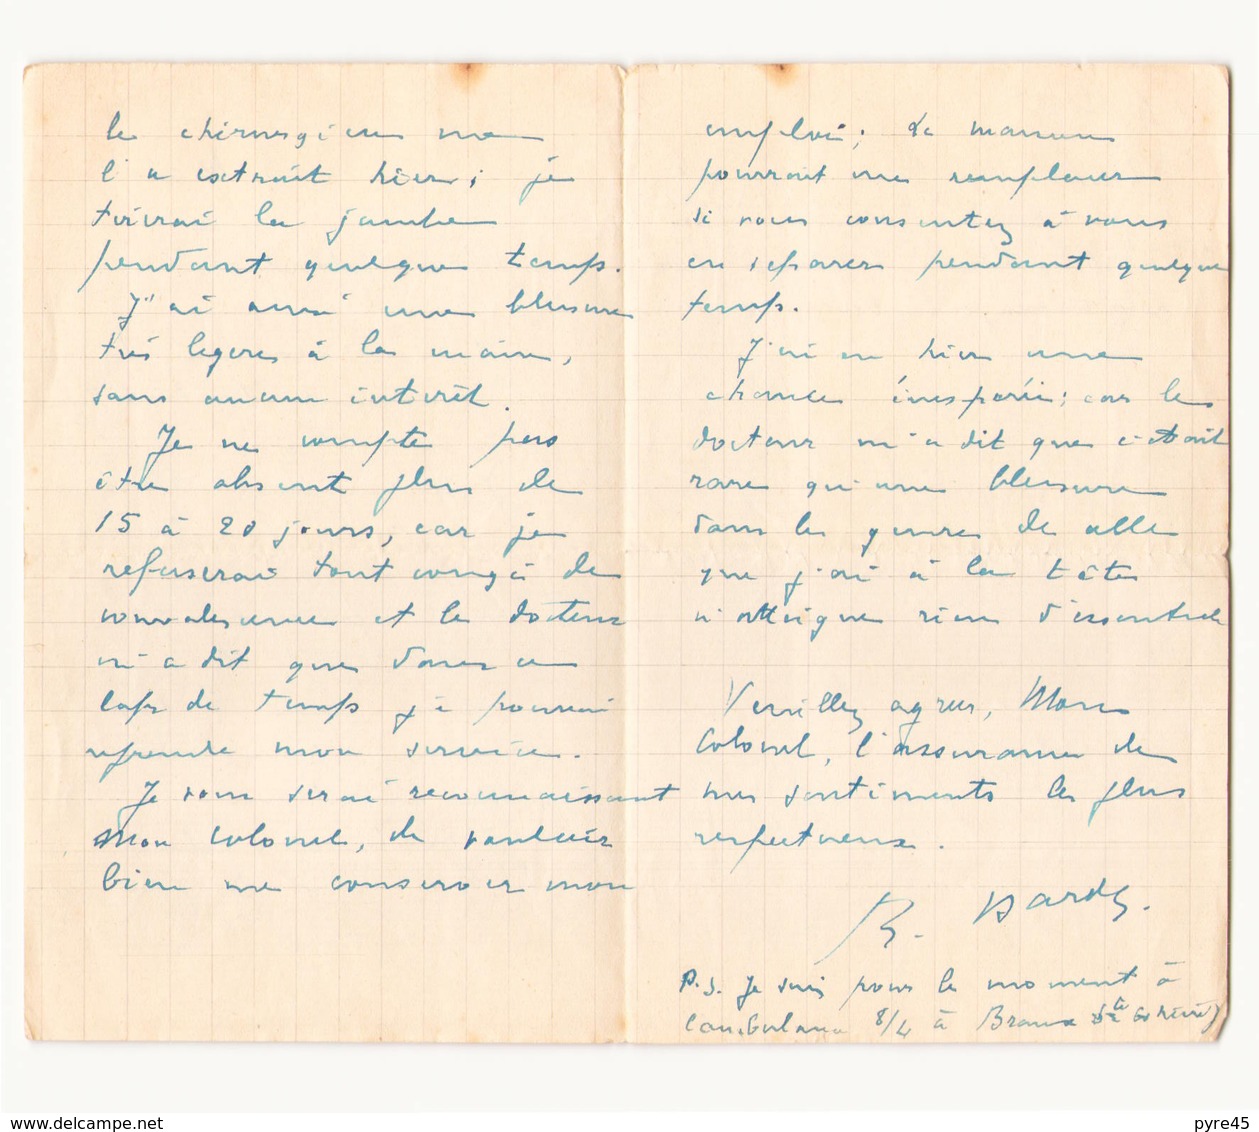 le chirurgien me
l'a extrait hier; je
tirerai la jambe
pendant quelque temps.
J'ai aussi une blessure
très légère à la main,
sans aucun intérêt.
Je ne compte pas
être absent plus de
15 à 20 jours, car je
refuserai tout congé de
convalescence et le docteur
m'a dit que dans ce
laps de temps je pourrai
reprendre mon service.
Je vous serai reconnaissant
Mon Colonel, de vouloir
bien me conserver mon
emploi;
pourrait me remplacer
si vous consentez à vous
en séparer pendant quelque
temps.
J'ai eu hier une
chance inespérée; car le
docteur m'a dit que c'était
rare qu'une blessure
dans le genre de celle
que j'ai à la tête
n'atteigne rien d'essentiel
Veuillez agréer, Mon
Colonel, l'assurance de
mes sentiments les plus
respectueux.
R. Hardy.
P.S. Je suis pour le moment à
l'ambulance 8/4 à Braux Ste Cohière)
www.delcampe.net
pyre45